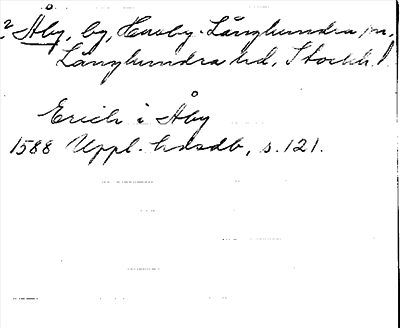 2 Åby, by, Husby-Långhundra sn,
Långhundra hd, Stockh. l.
Erich i Åby
1588 Uppl. hdsdb, s. 121.